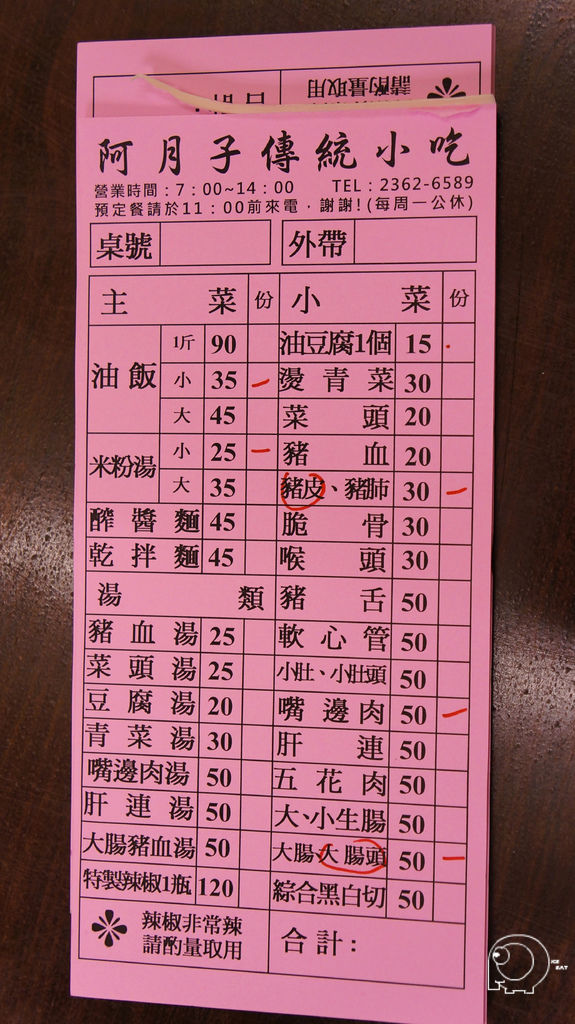 請酌量取用
阿月子傳統小吃
營業時間：7：00~14：00 TEL：2362-6589
預定餐請於11：00前來電，謝謝!(每周一公休)
桌號 外帶
主菜 份 小菜 份
油飯 1斤 90 油豆腐1個 15
小 35 燙青菜 30
大 45 菜頭 20
米粉湯 小 25 豬血 20
大 35 豬皮、豬肺 30
醡醬麵 45 脆骨 30
乾拌麵 45 喉頭 30
湯類 豬舌 50
豬血湯 25 軟心管 50
菜頭湯 25 小肚、小肚頭 50
豆腐湯 20 嘴邊肉 50
青菜湯 30 肝連 50
嘴邊肉湯 50 五花肉 50
肝連湯 50 大、小生腸 50
大腸豬血湯 50 大腸 大腸頭 50
特製辣椒1瓶 120 綜合黑白切 50
辣椒非常辣
請酌量取用
合計：
ICE
EAT